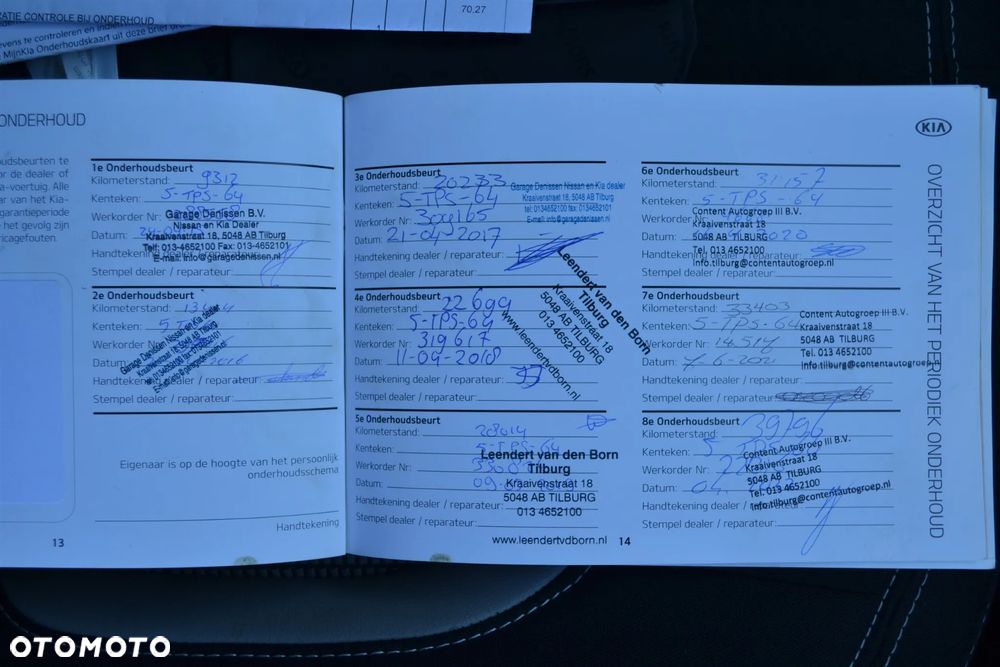 70.27
1
RATIE CONTROLE BIJ ONDERHOUD
evens te controleren en indien
MijnKia Onderhoudskaart uit deze brief
ONDERHOUD
oudsbeurten te
or de dealer of
a-voertuig. Alle
ar van het Kia-
garantieperiode
het gevolg zijn
ricagefouten.
1e Onderhoudsbeurt
Kilometerstand: 9312
Kenteken: 5-TPS-64
Werkorder Nr:
Datum:
Handtekening dealer / reparateur:
Stempel dealer / reparateur:
Garage Denissen B.V.
Nissan en Kia Dealer
Kraaivenstraat 18, 5048 AB Tilburg
Telf: 013-4652100 Fax: 013-4652101
E-mail: info@garagedenissen.nl
2e Onderhoudsbeurt
Kilometerstand:
Kenteken:
Werkorder Nr:
Datum: 2016
Handtekening dealer / reparateur:
Stempel dealer / reparateur:
Garage Denissen Nissan en Kia dealer
Kraaivenstraat 18, 5048 AB Tilburg
tel: 0134652100 fax: 0134652101
E-mail: info@garagedenissen.nl
Eigenaar is op de hoogte van het persoonlijk
onderhoudsschema
Handtekening
13
3e Onderhoudsbeurt
Kilometerstand: 20233
Kenteken: 5-TPS-64
Werkorder Nr: 300165
Datum: 21-04-2017
Handtekening dealer / reparateur:
Stempel dealer / reparateur:
Garage Denissen Nissan en Kia dealer
Kraaivenstraat 18, 5048 AB Tilburg
tel: 0134652100 fax: 0134652101
E-mail: info@garagedenissen.nl
4e Onderhoudsbeurt
Kilometerstand: 22699
Kenteken: 5-TPS-64
Werkorder Nr: 319617
Datum: 11-09-2018
Handtekening dealer / reparateur:
Stempel dealer / reparateur:
Leendert van den Born
Tilburg
Kraaivenstraat 18
5048 AB TILBURG
013 4652100
www.leendertvdborn.nl
5e Onderhoudsbeurt
Kilometerstand:
Kenteken: 5-TPS-64
Werkorder Nr:
Datum:
Handtekening dealer / reparateur:
Stempel dealer / reparateur:
Leendert van den Born
Tilburg
Kraaivenstraat 18
5048 AB TILBURG
013 4652100
www.leendertvdborn.nl
14
6e Onderhoudsbeurt
Kilometerstand: 31157
Kenteken: 5-TPS-64
Werkorder Nr:
Datum: 2020
Handtekening dealer / reparateur:
Stempel dealer / reparateur:
Content Autogroep III B.V.
Kraaivenstraat 18
5048 AB TILBURG
Tel. 013 4652100
Info.tilburg@contentautogroep.nl
7e Onderhoudsbeurt
Kilometerstand: 33403
Kenteken: 5-TPS-64
Werkorder Nr:
Datum:
Handtekening dealer / reparateur:
Stempel dealer / reparateur:
Content Autogroep III B.V.
Kraaivenstraat 18
5048 AB TILBURG
Tel. 013 4652100
Info.tilburg@contentautogroep.nl
8e Onderhoudsbeurt
Kilometerstand: 39796
Kenteken:
Werkorder Nr:
Datum:
Handtekening dealer / reparateur:
Stempel dealer / reparateur:
Content Autogroep III B.V.
Kraaivenstraat 18
5048 AB TILBURG
Tel. 013 4652100
Info.tilburg@contentautogroep.nl
KIA
OVERZICHT VAN HET PERIODIEK ONDERHOUD
OTOMOTO